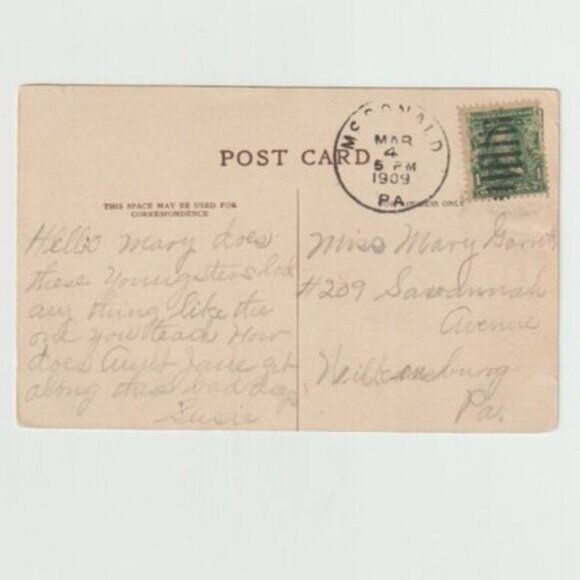 POST CARD
McDONALD
MAR
4
5 PM
1909
PA.
THIS SPACE MAY BE USED FOR
CORRESPONDENCE
FOR ADDRESS ONLY
Hello Mary does
these Youngsters look
any thing like the
one you teach How
does Aunt Jane get
along these bad days
Susie
Miss Mary
#209 Savannah
Avenue
Wilkensburg
Pa.